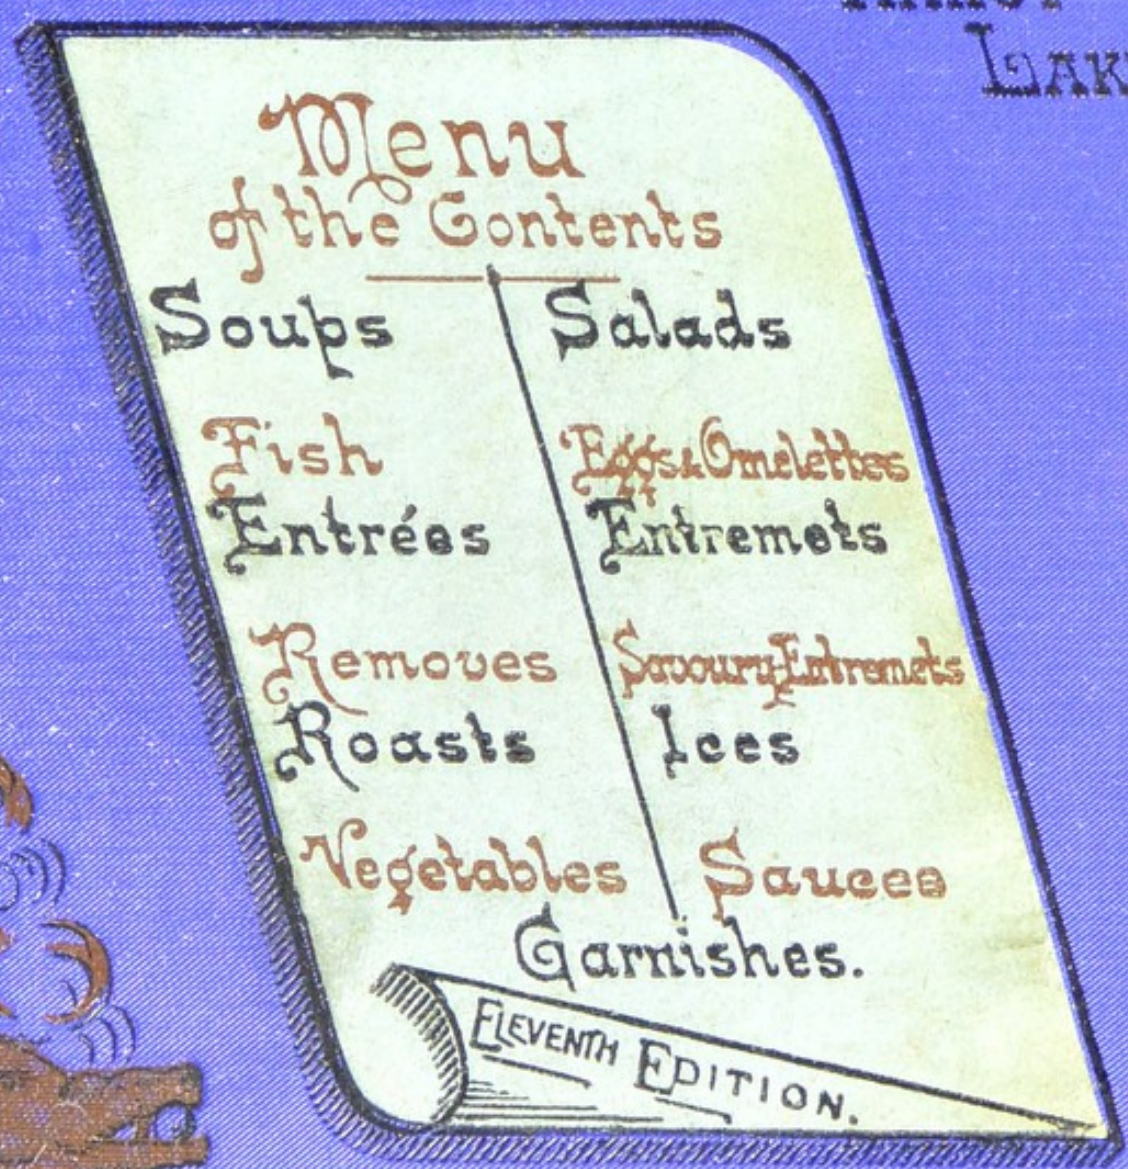 LAK
Menu
of the Contents
Soups
Fish
Entrées
Removes
Roasts
Vegetables
Salads
Eggs & Omelettes
Entremets
Savoury Entremets
Ices
Sauces
Garnishes.
ELEVENTH EDITION.